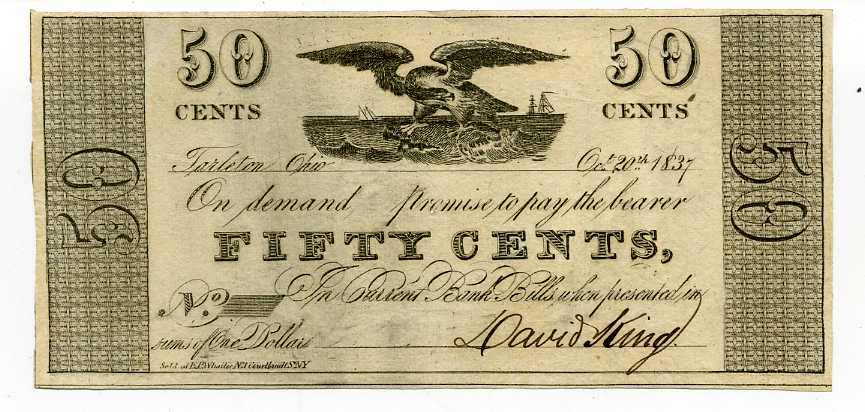 50 50
CENTS CENTS
Tarleton Ohio Oct. 20th 1837
50 50
On demand promise to pay the bearer
FIFTY CENTS,
No. In Current Bank Bills, when presented, in
sums of One Dollar
David King
Sold at